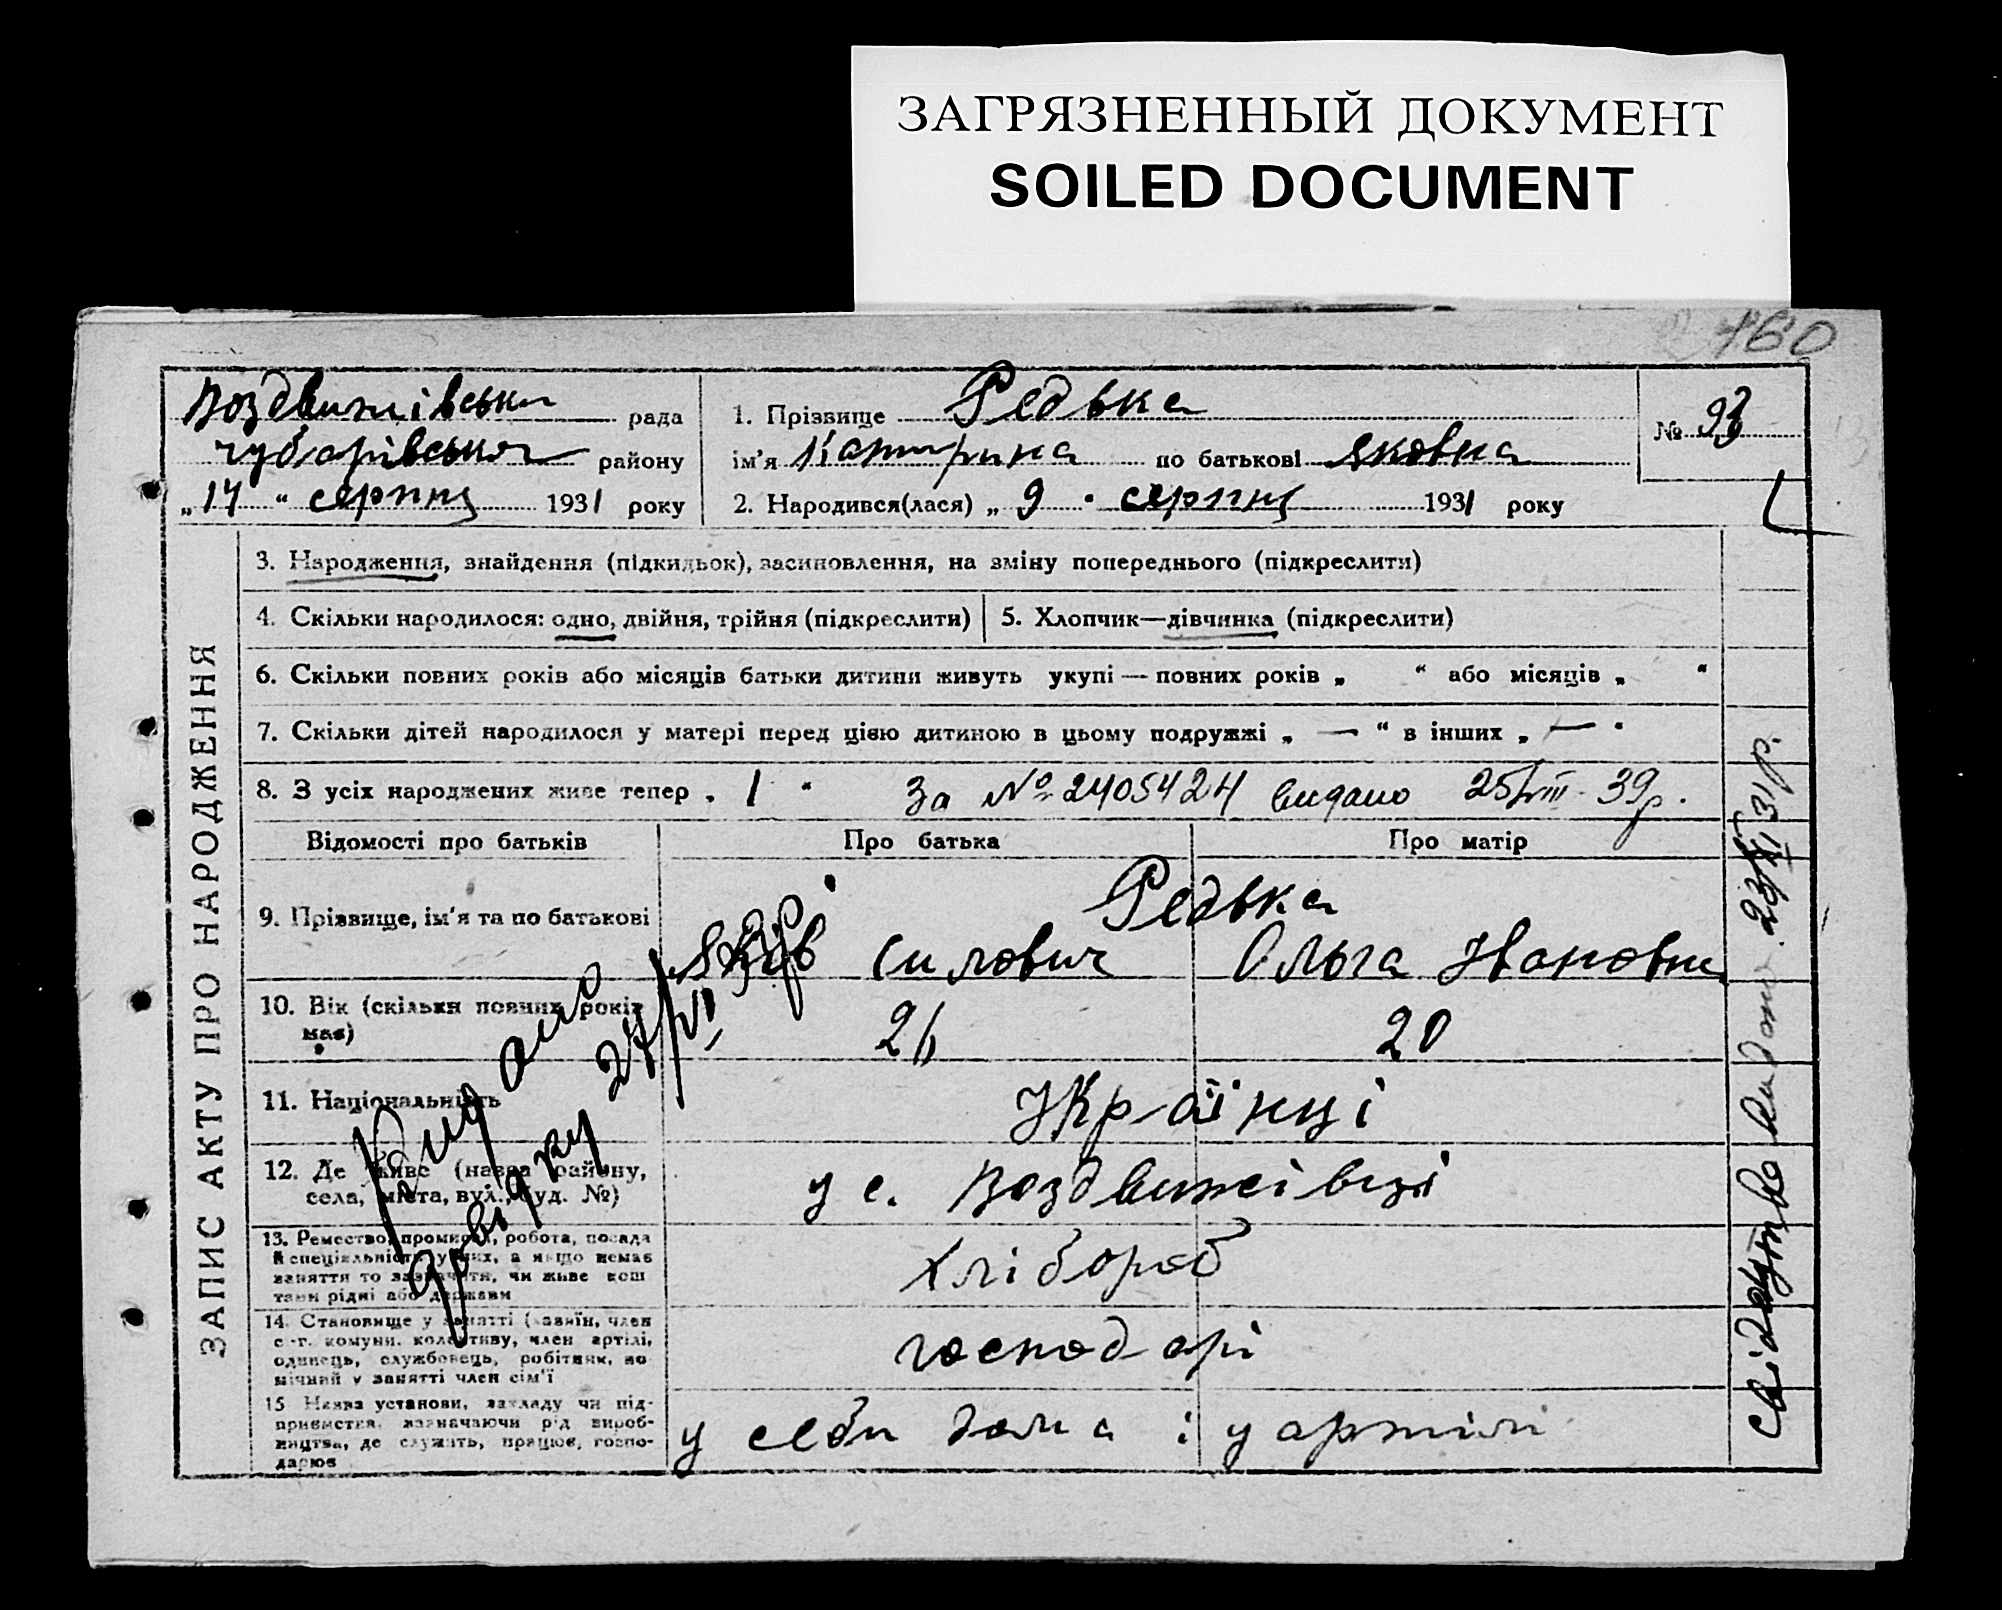 ЗАГРЯЗНЕННЫЙ ДОКУМЕНТ
SOILED DOCUMENT
160
Воздвижівська рада
Чубарівського району
„14“ серпня 1931 року
1. Прізвище Редька
ім'я Катирина по батькові Яковна
2. Народився(лася) „9“ серпня 1931 року
№ 93
ЗАПИС АКТУ ПРО НАРОДЖЕННЯ
3. Народження, знайдення (підкидьок), засиновлення, на зміну попереднього (підкреслити)
4. Скільки народилося: одно, двійня, трійня (підкреслити)
5. Хлопчик—дівчинка (підкреслити)
6. Скільки повних років або місяців батьки дитини живуть укупі — повних років „ “ або місяців „ “
7. Скільки дітей народилося у матері перед цією дитиною в цьому подружжі „ — “ в інших „ — “
8. З усіх народжених живе тепер „ 1 “ За № 2405424 видано 25/VIII 39р.
Відомості про батьків Про батька Про матір
9. Прізвище, ім'я та по батькові
Редька
Яків Силович Ольга Івановна
10. Вік (скільки повних років має) 26 20
11. Національність Українці
12. Де живе (назва району,
села, міста, вул., буд. №)
у с. Воздвижівці
13. Ремество, промисел, робота, посада
й спеціяльність у них, а якщо немає
заняття то зазначити, чи живе кош
тами рідні або держави
Хлібороб
14. Становище у занятті (хазяїн, член
с.-г. комуни, колективу, член артілі,
одинець, службовець, робітник, по
мічний у занятті член сім'ї
господарі
15 Назва установи, закладу чи під-
приємства, зазначаючи рід вироб-
ництва, де служить, працює, госпо-
дарює
у себи дома і у артілі
Видано
довідку 24/VI 32р
свідоцтво видано 23/XI 31р.